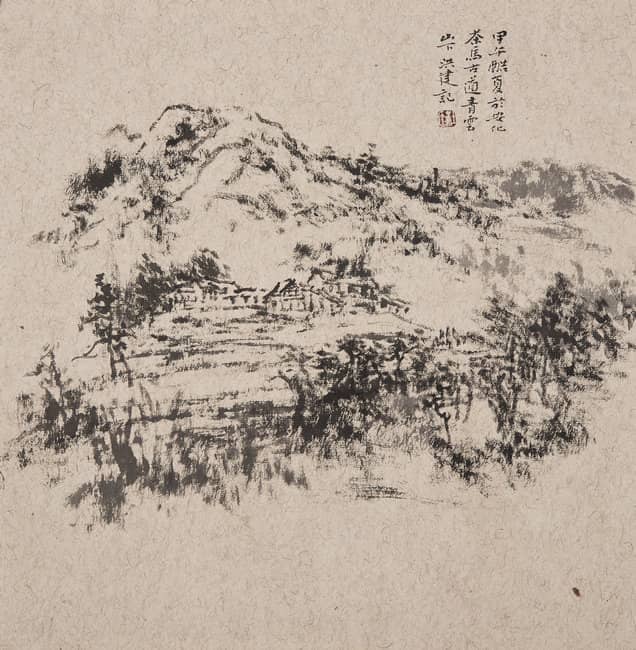 甲午酷夏於安化
茶馬古道青雲
山下洪建記